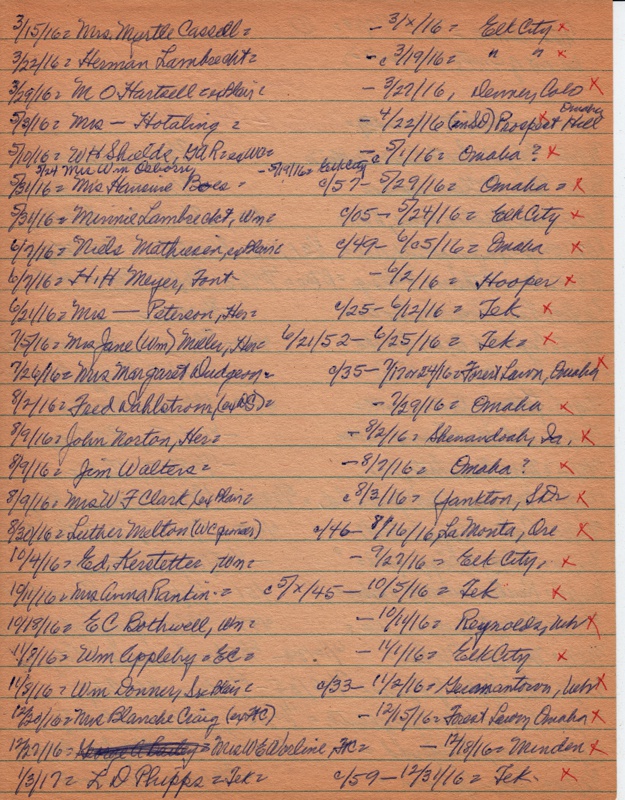 3/15/16 = Mrs. Myrtle Cassell = - 3/x/16 = Elk City x
3/22/16 = Herman Lambrecht = - c 3/19/16 = " " x
3/29/16 = M O Hartsell = ex Blair = - 3/27/16, Denver, Colo x
5/3/16 = Mrs — Hotaling = - 4/22/16 (in SD) Prospect Hill Omaha x
5/10/16 = W H Shields, GAR = - c 5/1/16 = Omaha? x
5/24 Mrs Wm Osborn - 5/19/16 = Elk City
5/31/16 = Mrs Hansine Boes = c/57 - 5/29/16 = Omaha = x
5/31/16 = Minnie Lambrecht, Wn = c/05 - 5/24/16 = Elk City x
6/7/16 = Niels Mathiesen, ex Blair = c/49 - 6/05/16 = Omaha x
6/7/16 = H H Meyer, Font - 6/2/16 = Hooper x
6/21/16 = Mrs — Peterson, Her = c/25 - 6/12/16 = Tek x
7/5/16 = Mrs Jane (Wm) Miller, Her = 6/21/52 - 6/25/16 = Tek = x
7/26/16 = Mrs Margaret Dudgeon = c/35 - 7/17 or 24/16 = Forest Lawn, Omaha x
8/2/16 = Fred Dahlstrom (ex DS) = - 7/29/16 = Omaha x
8/9/16 = John Norton, Her = - 8/2/16 = Shenandoah, Ia, x
8/9/16 = Jim Walters = - 8/7/16 = Omaha? x
8/9/16 = Mrs W F Clark, (ex Blair = c 8/3/16 = Yankton, SD x
8/30/16 = Luther Melton (WC pioneer) c/46 - 8/16/16, La Monta, Ore x
10/4/16 = Ed. Kerstetter, Wn = - 9/27/16 = Elk City, x
10/11/16 = Mrs Anna Rankin = c 5/x/45 - 10/5/16 = Tek x
10/18/16 = E C Bothwell, Wn = - 10/14/16 = Reynolds, Nebr x
11/8/16 = Wm Appleby = EC = - 11/1/16 = Elk City x
11/8/16 = Wm Donner, S x Blair = c/33 - 11/2/16 = Guamantown, Nebr x
12/20/16 = Mrs Blanche Craig (ex FC) - 12/15/16 = Forest Lawn Omaha x
12/27/16 = Mrs W E Verline, FC = - 12/18/16 = Minden x
1/3/17 = L D Phipps = Tek = c/59 - 12/31/16 = Tek - x